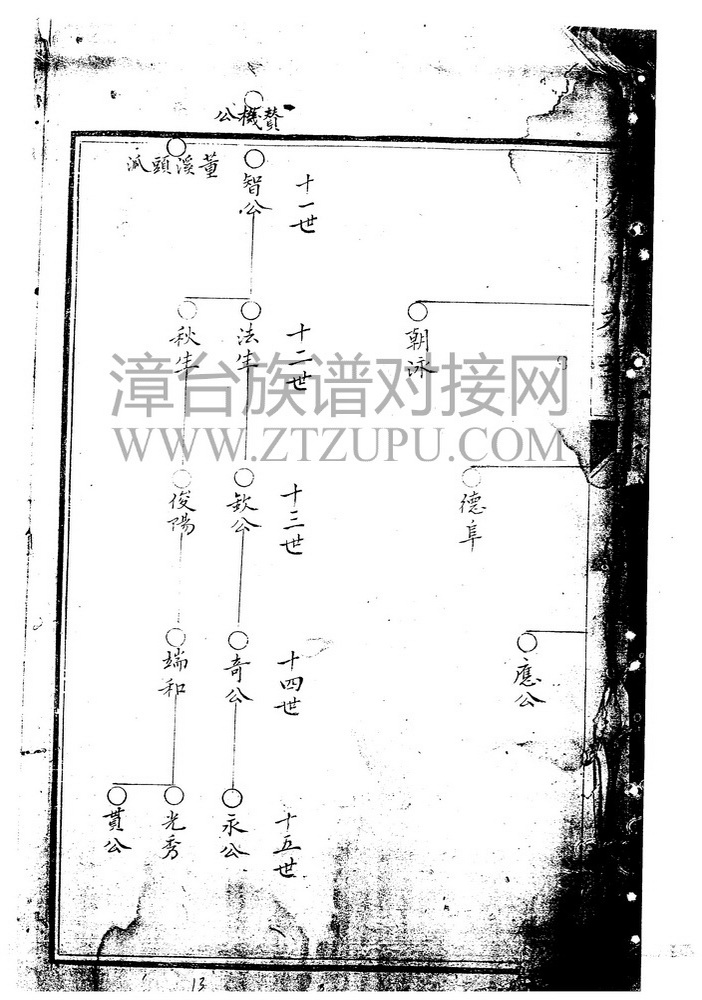 贊機公
董溪頭派
十一世
智公
十二世
法生
秋生
朝泳
漳台族谱对接网
WWW.ZTZUPU.COM
十三世
欽公
俊陽
德阜
十四世
奇公
端和
應公
十五世
永公
光秀
貫公
13